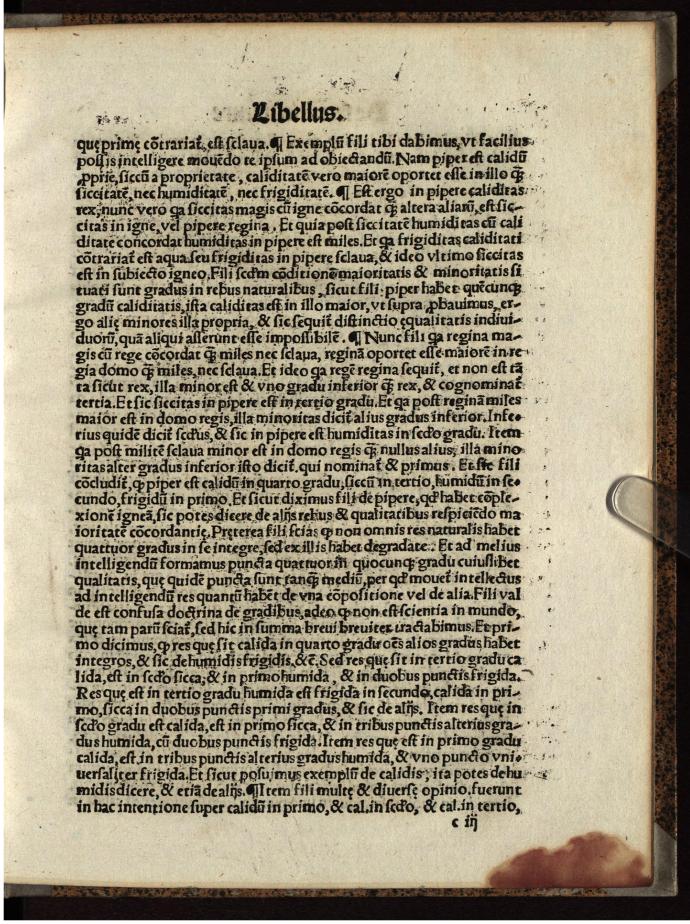 Libellus.
quę primę cõtrariat̃, est sclaua. ¶ Exemplũ fili tibi dabimus, vt facilius
possis intelligere mouẽdo te ipsum ad obiectandũ. Nam piper est calidũ
ꝓprie, siccũ a proprietate, caliditatẽ vero maiorẽ oportet esse in illo q̃ȝ
siccitatẽ, nec humiditatẽ, nec frigiditatẽ. ¶ Est ergo in pipere caliditas
rex, nunc vero qa siccitas magis cũ igne cõcordat q̃ȝ altera aliarũ, est sic-
citas in igne, vel pipere regina. Et quia post siccitatẽ humiditas cũ cali
ditate concordat humiditas in pipere est miles. Et qa frigiditas caliditati
cõtrariat̃ est aqua seu frigiditas in pipere sclaua, & ideo vltimo siccitas
est in subiecto igneo. Fili scdm cõditionẽ maioritatis & minoritatis si
tuati sunt gradus in rebus naturalibus, sicut fili: piper habet quẽcunqȝ
gradũ caliditatis, ista caliditas est in illo maior, vt supra ꝓbauimus, er-
go alię minores illa propria, & sic sequit̃ distinctio ęqualitatis indiui-
duorũ, quã aliqui asserunt esse impossibilẽ. ¶ Nunc fili qa regina ma-
gis cũ rege cõcordat q̃ȝ miles nec sclaua, reginã oportet esse maiorẽ in re
gia domo q̃ȝ miles, nec sclaua. Et ideo qa regẽ regina sequit̃, et non est tã
ta sicut rex, illa minor est & vno gradu inferior q̃ȝ rex, & cognominat̃
tertia. Et sic siccitas in pipere est in tertio gradu. Et qa post reginã miles
maior est in domo regis, illa minoritas dicit̃ alius gradus inferior. Infe-
rius quidẽ dicit̃ scdus, & sic in pipere est humiditas in scdo gradu. Item
qa post militẽ sclaua minor est in domo regis q̃ȝ nullus alius, illa mino
ritas alter gradus inferior isto dicit̃, qui nominat̃ & primus. Et sic fili
cõcludit̃, ꝙ piper est calidũ in quarto gradu, siccũ in tertio, humidũ in se-
cundo, frigidũ in primo. Et sicut diximus fili de pipere, qd habet cõple-
xionẽ igneã, sic potes dicere de alijs rebus & qualitatibus respiciẽdo ma
ioritatẽ cõcordantię. Pręterea fili scias ꝙ non omnis res naturalis habet
quattuor gradus in se integre, sed ex illis habet degradate. Et ad melius
intelligendũ formamus puncta quattuor in quocunqȝ gradu cuiuslibet
qualitatis, quę quidẽ puncta sunt tanq̃ȝ mediũ, per qd mouet̃ intellectus
ad intelligendũ res quantũ habẽt de vna cõpositione vel de alia. Fili val
de est confusa doctrina de gradibus, adeo ꝙ non est scientia in mundo,
quę tam parũ sciat̃, sed hic in summa breui breuiter tractabimus. Et pri-
mo dicimus, ꝙ res quę sit calida in quarto gradu oẽs alios gradus habet
integros, & sic de humidis frigidis, &c̃. Sed res quę sit in tertio gradu ca
lida, est in scdo sicca, & in primo humida, & in duobus punctis frigida.
Res quę est in tertio gradu humida est frigida in secundo, calida in pri-
mo, sicca in duobus punctis primi gradus, & sic de alijs. Item res quę in
scdo gradu est calida, est in primo sicca, & in tribus punctis alterius gra-
dus humida, cũ duobus punctis frigida. Item res quę est in primo gradu
calida, est in tribus punctis alterius gradus humida, & vno puncto vni-
uersaliter frigida. Et sicut posuimus exemplũ de calidis, ita potes de hu
midis dicere, & etiã de alijs. ¶ Item fili multę & diuersę opinio. fuerunt
in hac intentione super calidũ in primo, & cal. in scdo, & cal. in tertio,
c iij